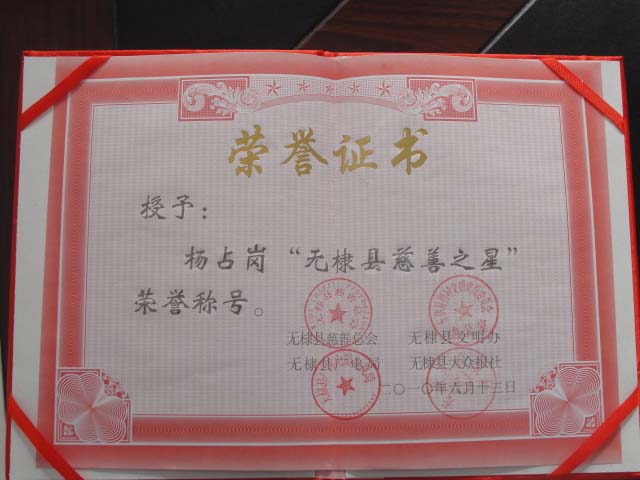 荣誉证书
授予：
杨占岗“无棣县慈善之星”
荣誉称号。
无棣县慈善总会 无棣县文明办
无棣县广电局 无棣县大众报社
二〇一〇年六月十三日